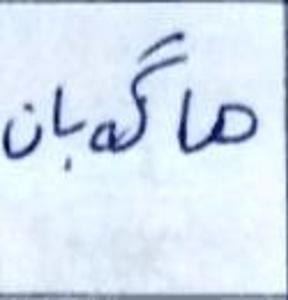 ماگه بان